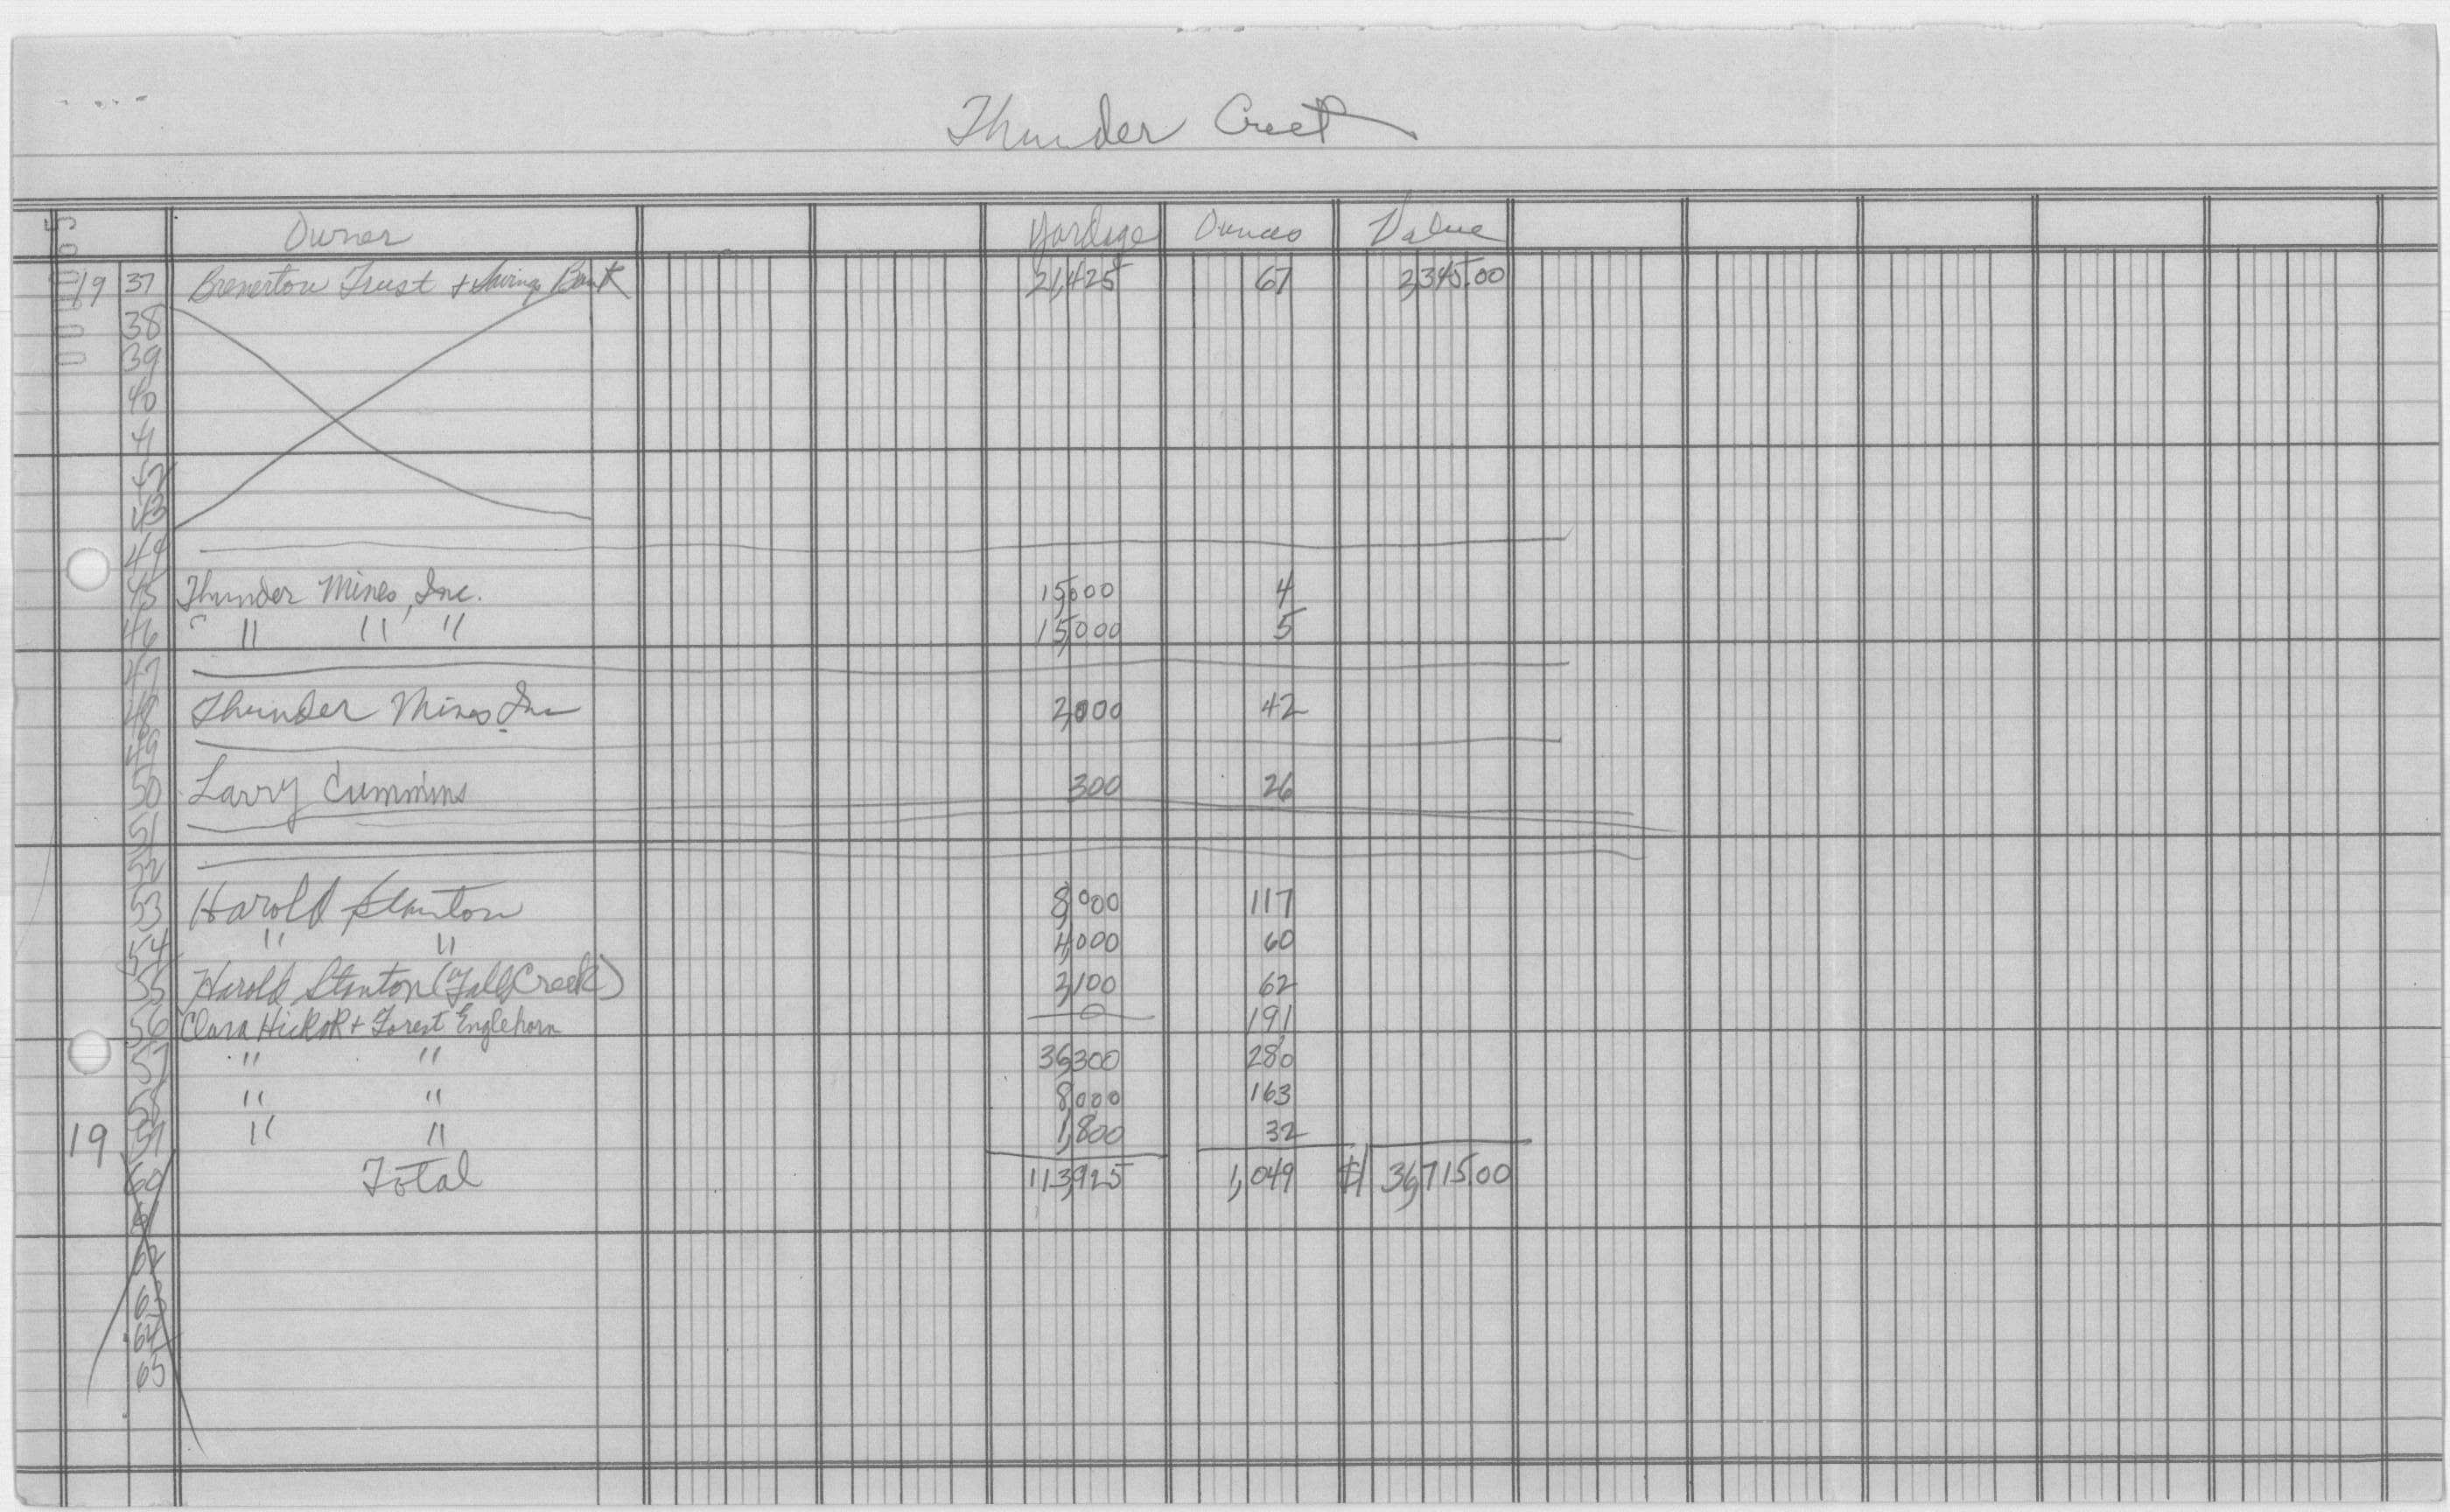 Thunder Creek
Owner Yardage Ounces Value
19 37 Bremerton Trust + Savings Bank 21,425 67 2,345.00
38
39
40
41
42
43
44
45 Thunder Mines, Inc. 15,000 4
46 " " " " 15,000 5
47
48 Thunder Mines Inc 2,000 42
49
50 Larry Cummins 300 26
51
52
53 Harold Stanton 8,000 117
54 " " 4,000 60
55 Harold Stanton (Fall Creek) 2,100 62
56 Clara Hickok + Forest Englehorn 0 191
57 " " 36,300 280
58 " " 8,000 163
19 59 " " 1,800 32
60 Total 113,925 1,049 $ 36,715.00
61
62
63
64
65